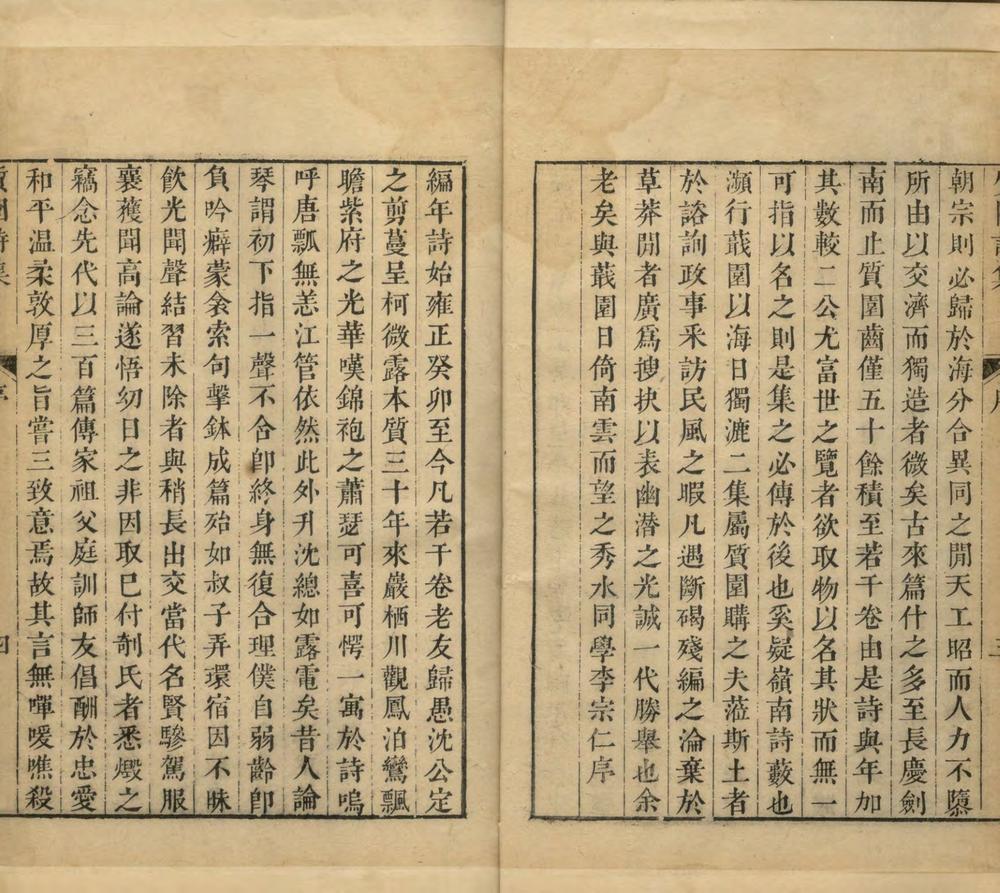 朝宗則必歸於海分合異同之閒天工昭而人力不隳
所由以交濟而獨造者微矣古來篇什之多至長慶劍
南而止質園齒僅五十餘積至若干卷由是詩與年加
其數較二公尤富世之覽者欲取物以名其狀而無一
可指以名之則是集之必傳於後也奚疑嶺南詩藪也
瀕行蕺園以海日獨漉二集屬質園購之夫蒞斯土者
於諮詢政事釆訪民風之暇凡遇斷碣殘編之淪棄於
草莽閒者廣爲搜抉以表幽潛之光誠一代勝舉也余
老矣與蕺園日倚南雲而望之秀水同學李宗仁序
編年詩始雍正癸卯至今凡若干卷老友歸愚沈公定
之剪蔓呈柯微露本質三十年來巖栖川觀鳳泊鸞飄
瞻紫府之光華嘆錦袍之蕭瑟可喜可愕一寓於詩嗚
呼唐瓢無恙江管依然此外升沈總如露電矣昔人論
琴謂初下指一聲不合卽終身無復合理僕自弱齡卽
負吟癖蒙衾索句擊鉢成篇殆如叔子弄環宿因不昧
飲光聞聲結習未除者與稍長出交當代名賢驂駕服
襄蘉聞高論遂悟曩日之非因取已付剞氏者悉燬之
竊念先代以三百篇傳家祖父庭訓師友倡酬於忠愛
和平温柔敦厚之旨嘗三致意焉故其言無嘽嗳噍殺
序
四